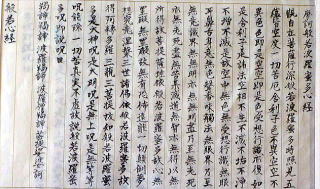 摩訶般若波羅蜜多心經
觀自在菩薩行深般若波羅蜜多時照見五
蘊皆空度一切苦厄舍利子色不異空空不
異色色即是空空即是色受想行識亦復如
是舍利子是諸法空相不生不滅不垢不淨
不增不減是故空中無色無受想行識無眼
耳鼻舌身意無色聲香味觸法無眼界乃至
無意識界無無明亦無無明盡乃至無老死
亦無老死盡無苦集滅道無智亦無得以無
所得故菩提薩埵依般若波羅蜜多故心無
罣礙無罣礙故無有恐怖遠離一切顛倒夢
想究竟涅槃三世諸佛依般若波羅蜜多故
得阿耨多羅三藐三菩提故知般若波羅蜜
多是大神呪是大明呪是無上呪是無等等
呪能除一切苦真實不虛故說般若波羅蜜
多呪即說呪曰
揭諦揭諦 波羅揭諦 波羅僧揭諦 菩提薩婆訶
般若心經